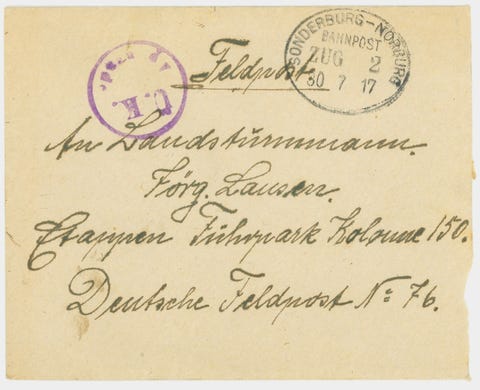 SONDERBURG-NORBURG
BAHNPOST
ZUG 2
30 7 17
Feldpost.
U.K.
An Landsturmmann.
Jörg. Lausen.
Etappen Fuhrpark Kolonne 150.
Deutsche Feldpost No 76.